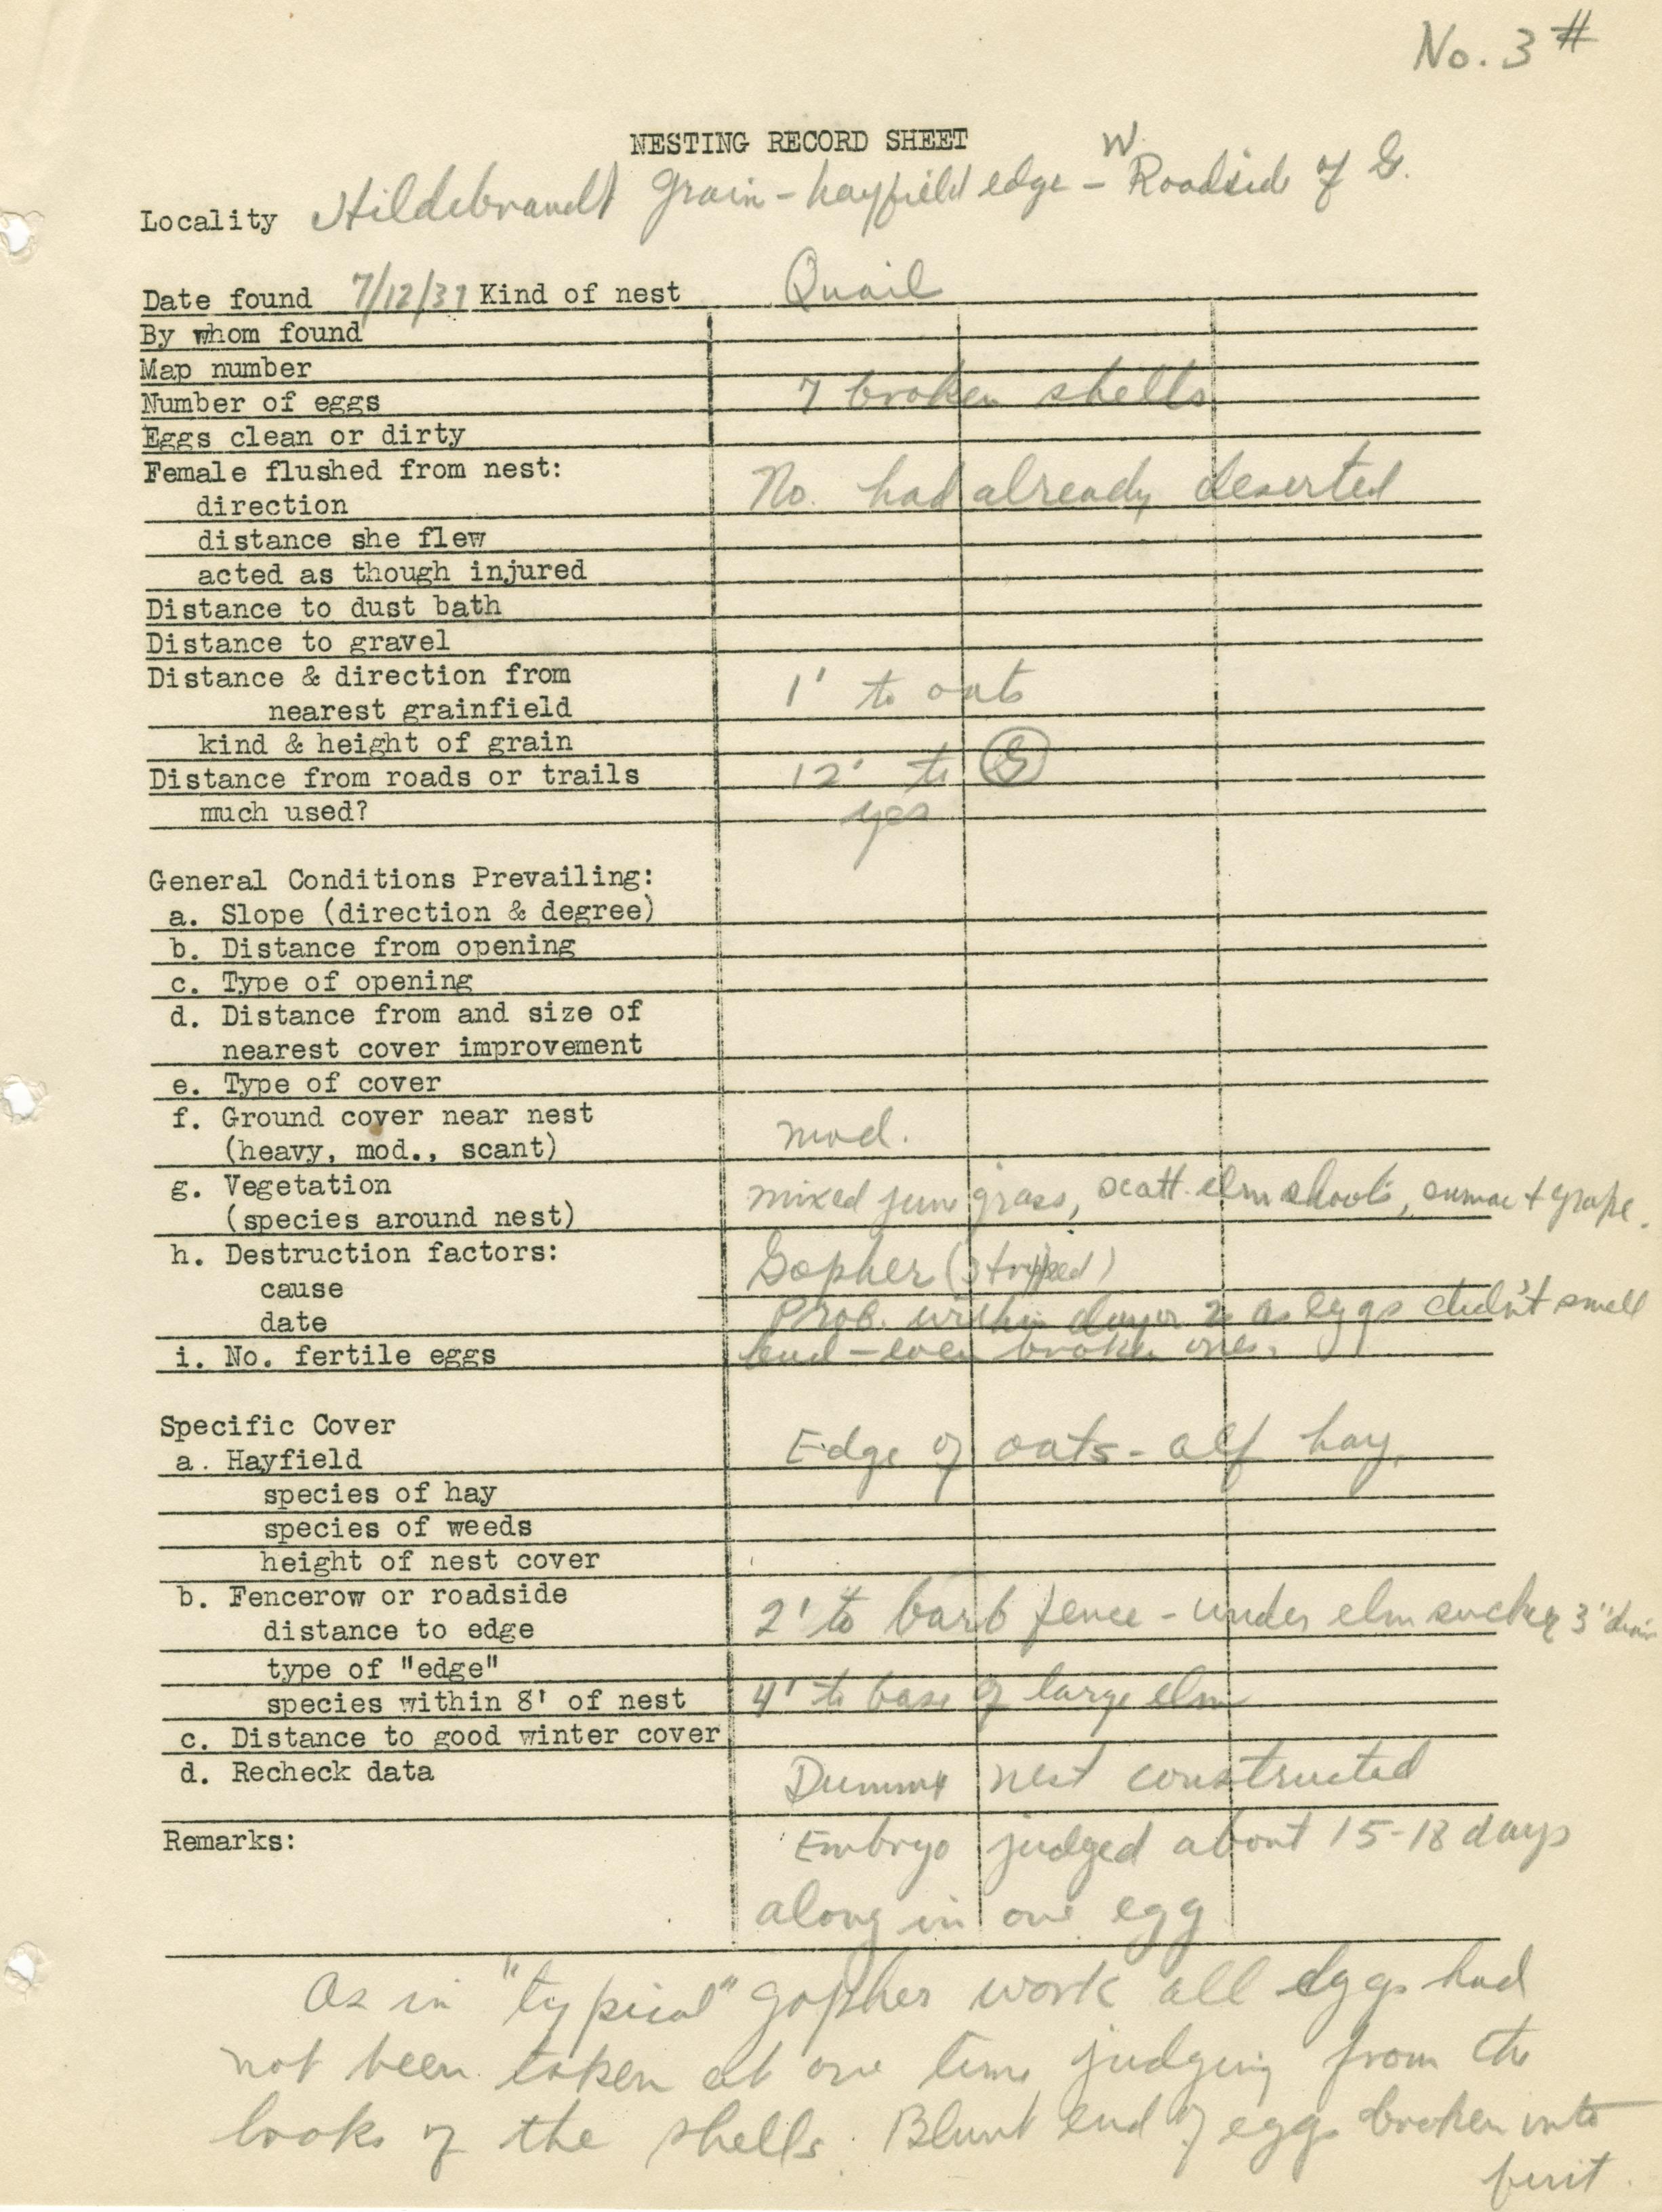 No. 3 #
NESTING RECORD SHEET
Locality Hildebrandt Grain - hayfield edge - W. Roadside of G.
Date found 7/12/37 Kind of nest Quail
By whom found
Map number
Number of eggs 7 broken shells
Eggs clean or dirty
Female flushed from nest:
direction No. had already deserted
distance she flew
acted as though injured
Distance to dust bath
Distance to gravel
Distance & direction from
nearest grainfield 1' to oats
kind & height of grain
Distance from roads or trails 12' to G
much used? yes
General Conditions Prevailing:
a. Slope (direction & degree)
b. Distance from opening
c. Type of opening
d. Distance from and size of
nearest cover improvement
e. Type of cover
f. Ground cover near nest
(heavy, mod., scant) mod.
g. Vegetation
(species around nest) mixed june grass, scatt. elm shoots, sumac + grape.
h. Destruction factors:
cause Gopher (striped)
date Prob. within day or 2 as eggs didn't smell
i. No. fertile eggs bad - even broken ones.
Specific Cover
a. Hayfield Edge of oats - alf hay.
species of hay
species of weeds
height of nest cover
b. Fencerow or roadside
distance to edge 2' to barb fence - under elm sucker 3" diam
type of "edge"
species within 8' of nest 4' to base of large elm
c. Distance to good winter cover
d. Recheck data Dummy nest constructed
Remarks: Embryo judged about 15-18 days
along in one egg
As in "typical" gopher work all eggs had
not been taken at one time judging from the
looks of the shells. Blunt end of eggs broken into
first.